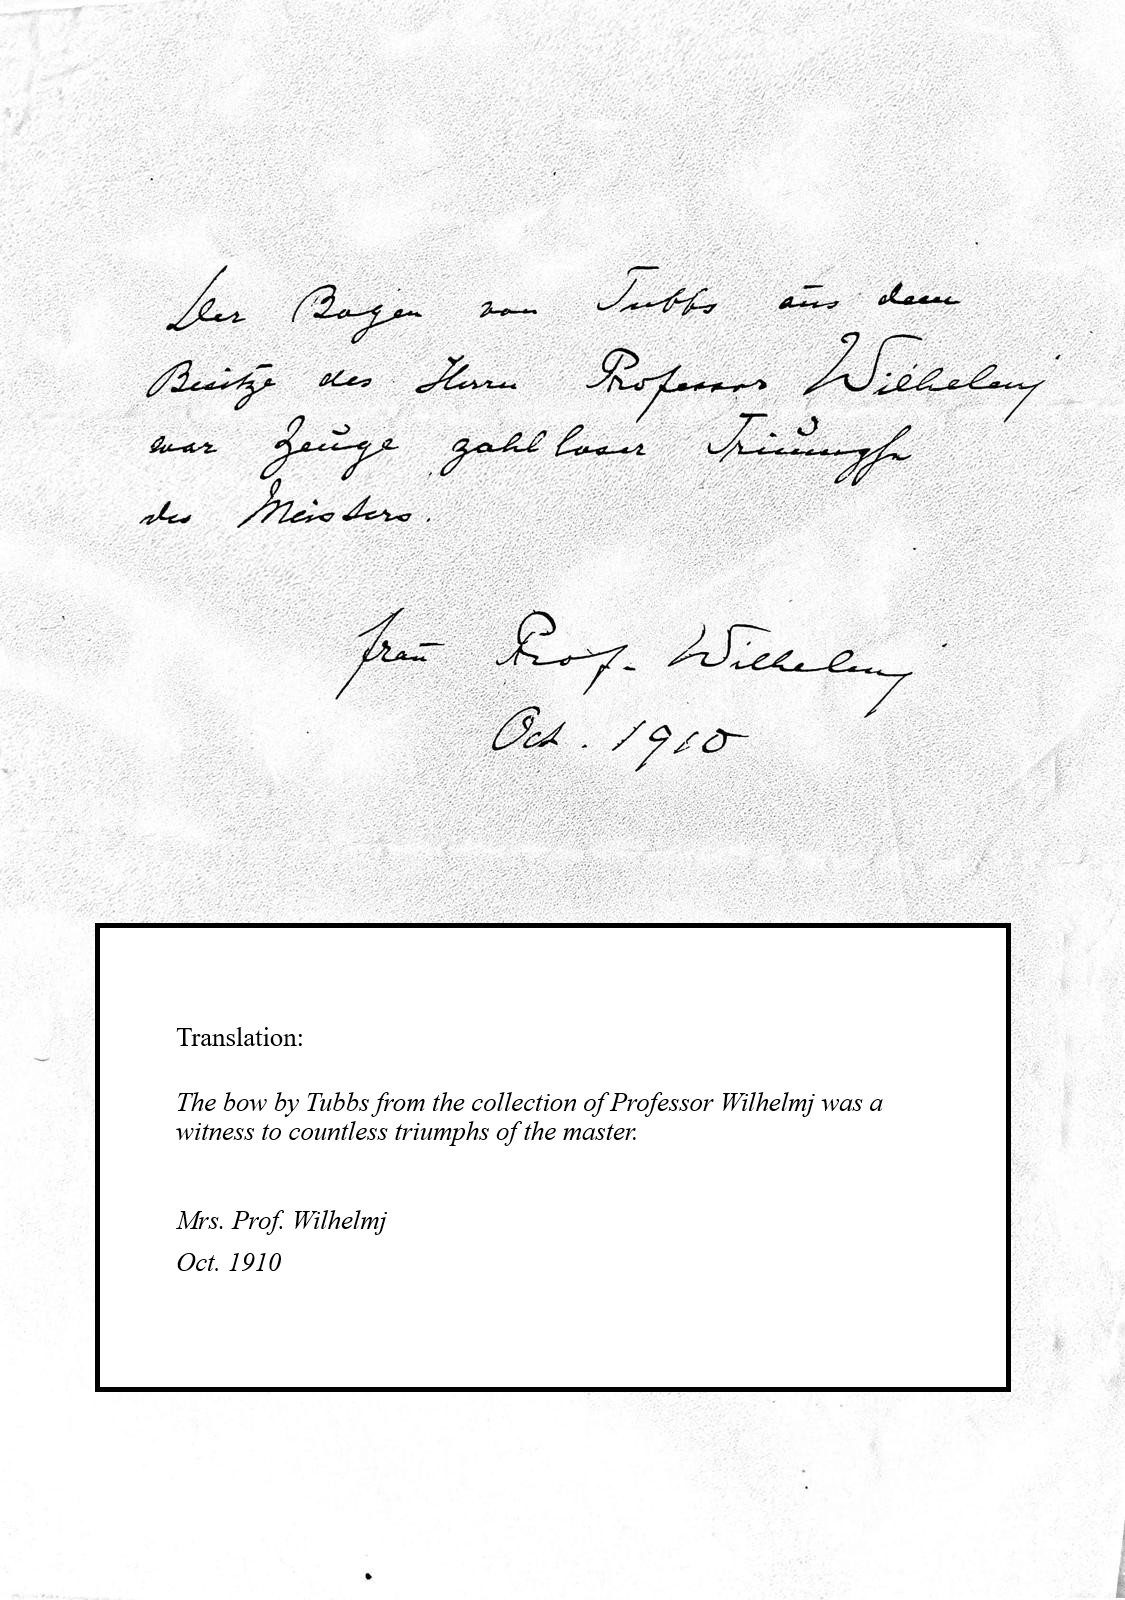 Der Bogen von Tubbs aus dem
Besitze des Herrn Professor Wilhelmj
war Zeuge zahlloser Triumphe
des Meisters.
Frau Prof. Wilhelmj
Oct. 1910
Translation:
The bow by Tubbs from the collection of Professor Wilhelmj was a
witness to countless triumphs of the master.
Mrs. Prof. Wilhelmj
Oct. 1910